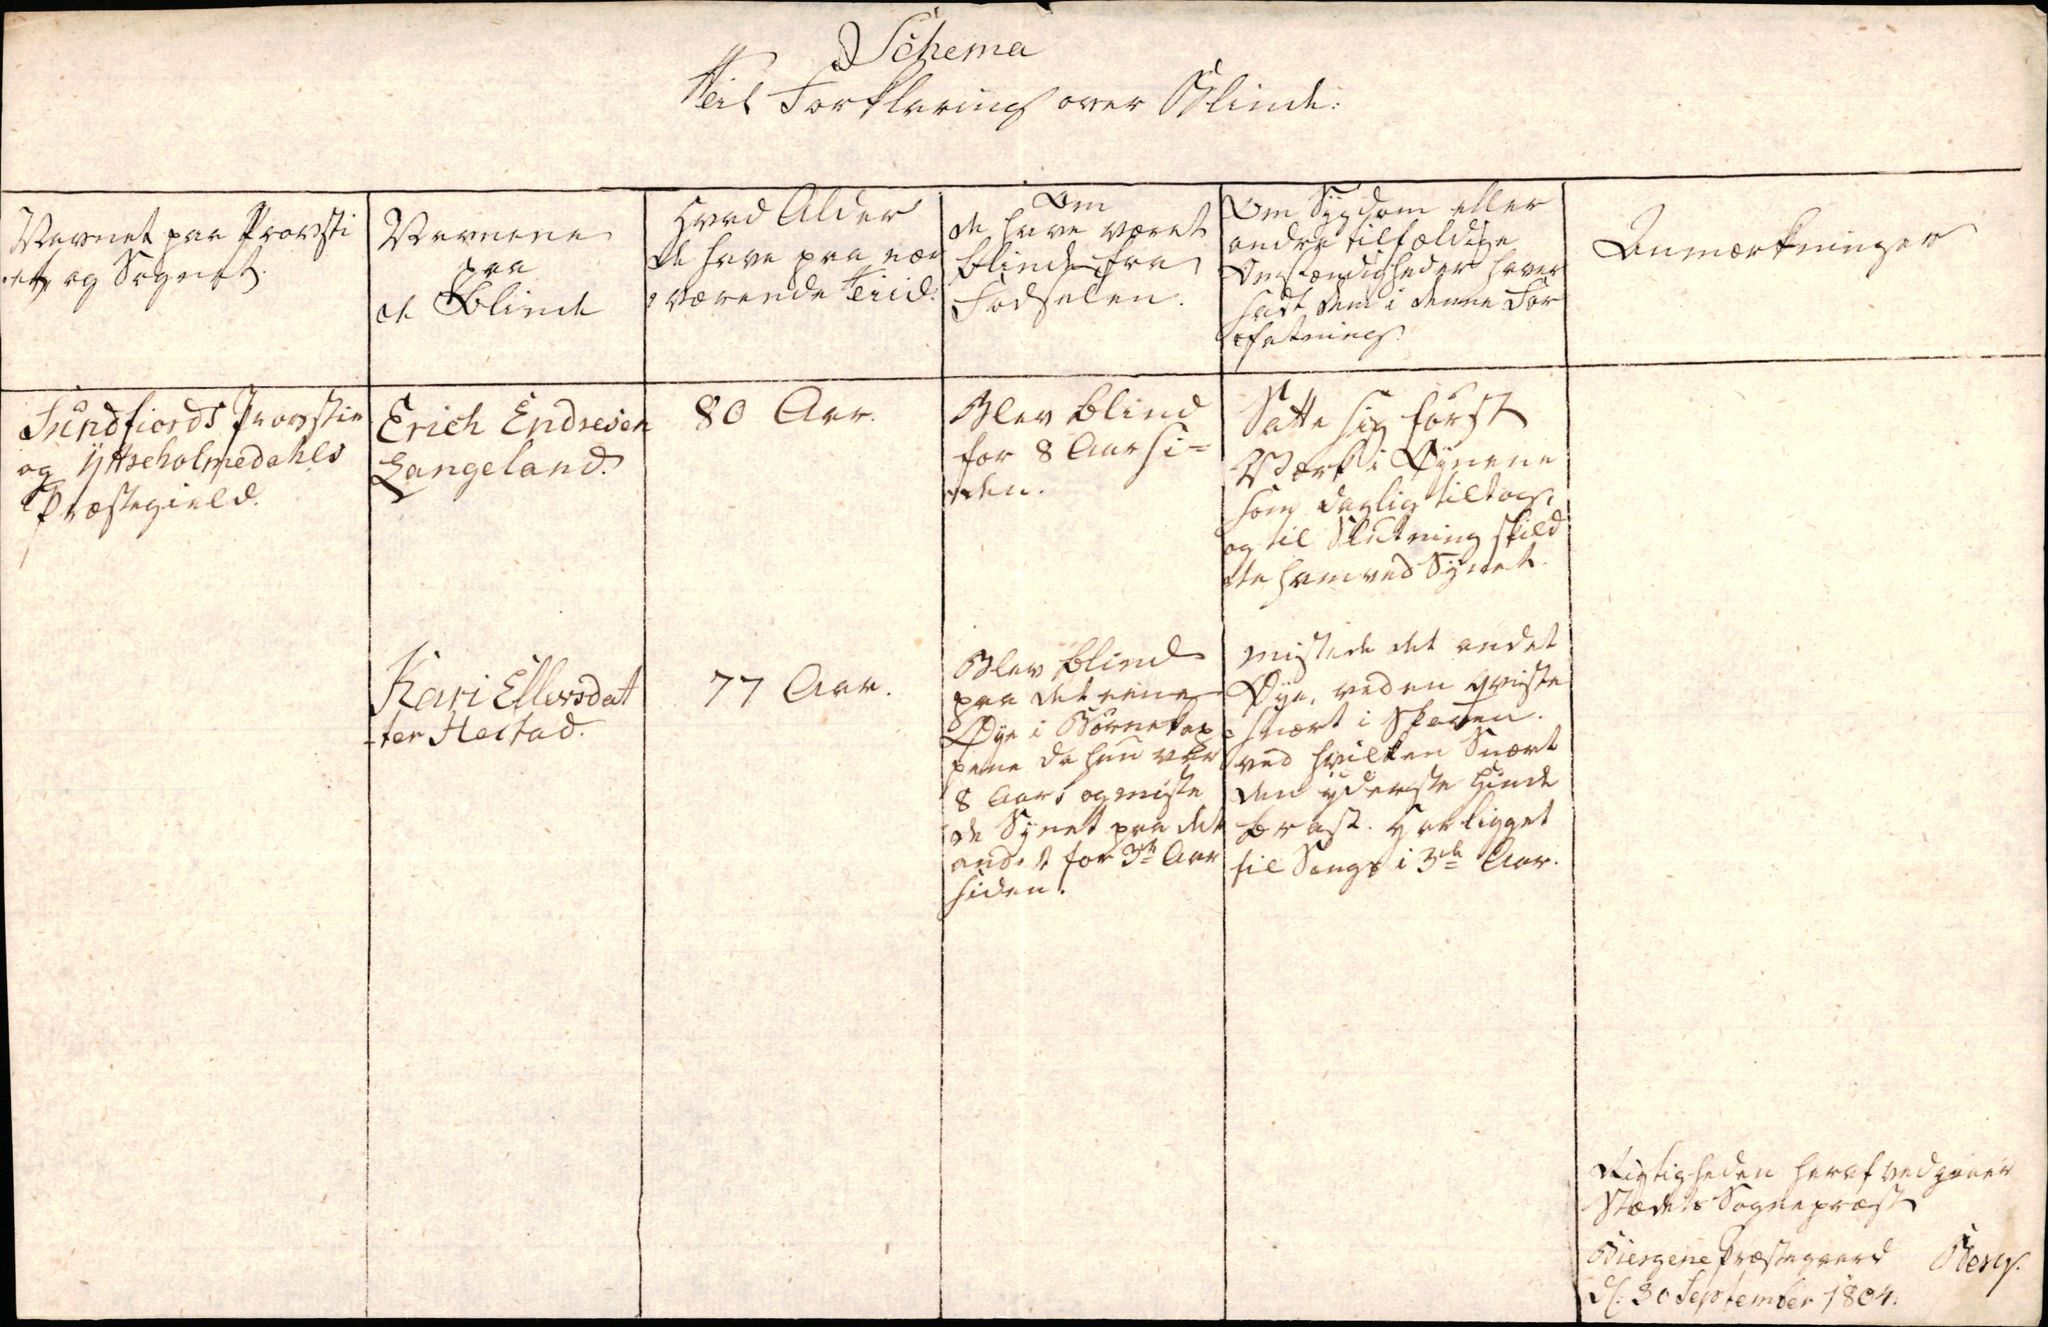 Schema
Til Forklaring over Blinde.
Navnet paa Provsti
et og Sognet.
Navnene
paa
de Blinde
Hvad Alder
de have paa nær
værende Tiid.
Om
de have været
blinde fra
Fødselen.
Om Sygdom eller
andre tilfældige
Omstændigheder haver
sadt dem i denne For
fatning.
Anmærkninger
Sundfiords Provstie
og Yttreholmedahls
Præstegield.
Erich Endresen
Langeland.
80 Aar.
Blev blind
for 8 Aar si-
den.
Satte sig først
Værk i Øynene
som daglig tiltog,
og til Slutning skild
te ham ved Synet.
Kari Ellersdat
ter Hestad.
77 Aar.
Blev blind
paa det eene
Øye i Børnekop
pene da hun var
8 Aars og miste
de Synet paa det
andet for 3de Aar
siden.
mistede det andet
Øye, ved en qviste
snært i Skoven.
ved hvilken Snært
den yderste Hinde
brast. Har ligget
til Sengs i 3de Aar.
Rigtigheden heraf vedgaaer
Stædets Sognepræst
Biergene Præstegaard
d. 30 September 1804.